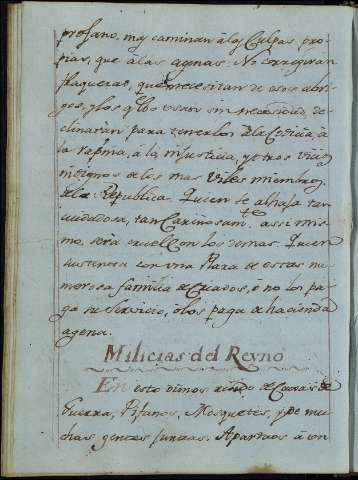 profano, mas caminan à las Culpas pro-
pias, que à las agenas: No corregirán
flaquezas, que necesitan de esos abri-
gos, y los q.e los usan sin necesidad, de-
clinarán para tenerlos à la Codicia, à
la rapiña, à la injusticia, y otros vicios
indignos de los mas Viles miembros
dela Republica. Quien se abriga tan
cuidadosa, tan Cariñosam.te assi mis-
mo, será cruel con los demas. Quien
sustenta con una Plaza de estas nu-
merosa familia de Criados, ò no los pa-
ga su servicio, ò los paga de hacienda
agena.
Milicias del Reyno
En esto oimos ruido de Caxas de
Guerra, Pifanos, Mosquetes, y de mu-
chas gentes juntas. Apartaos à un